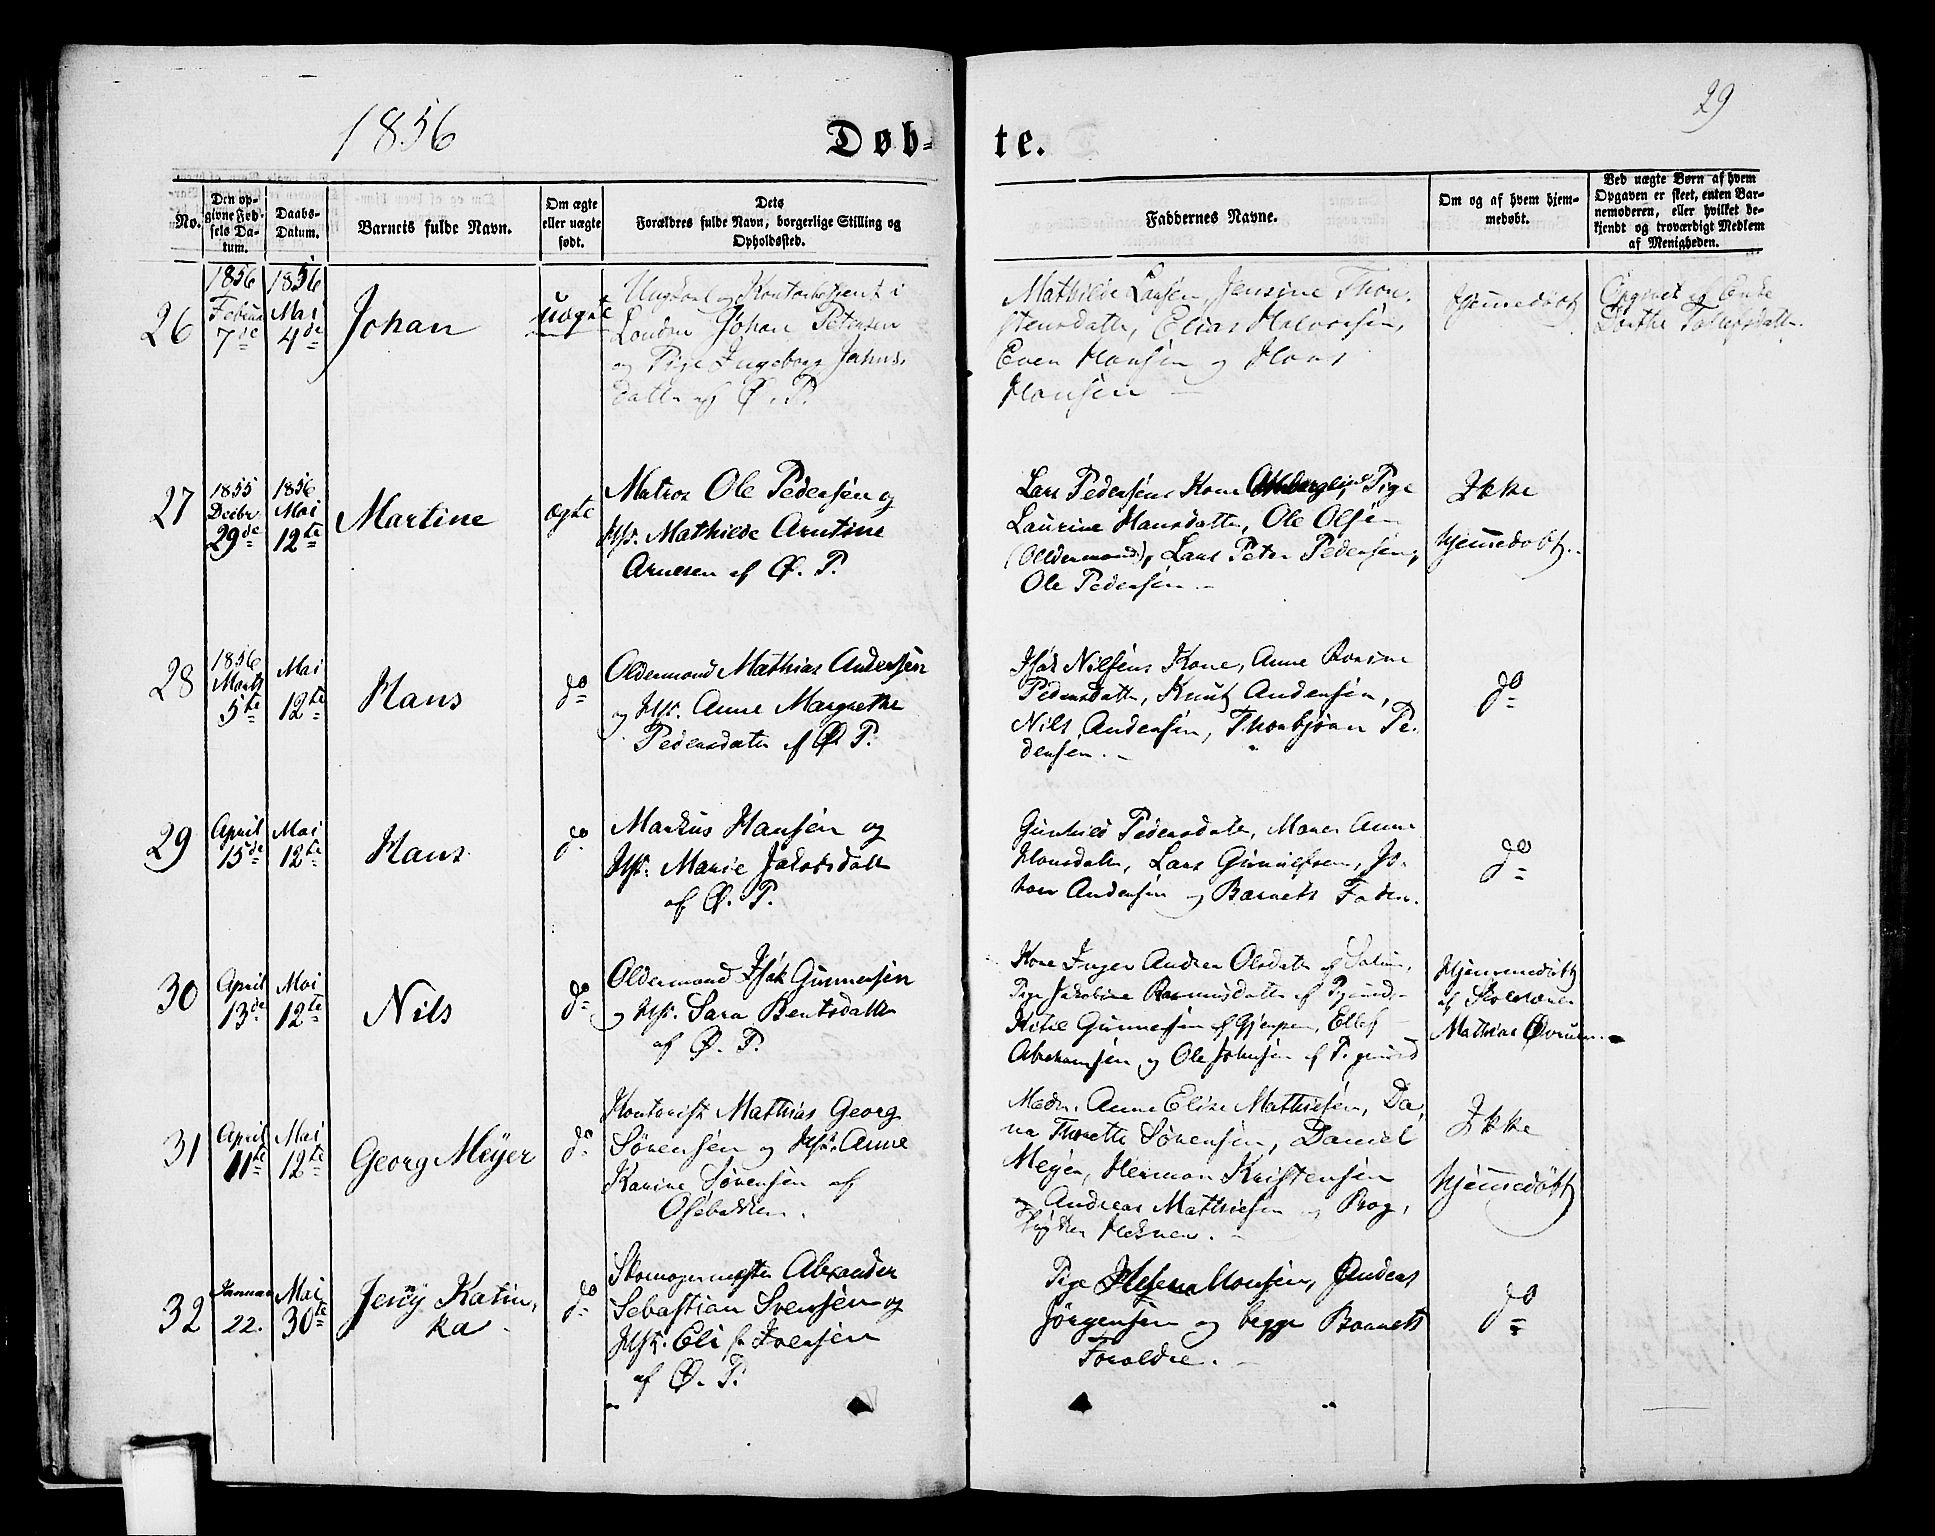 1856
29
Døb-
te.
No.
Den op-
givne Fød-
sels Da-
tum.
Daabs-
Datum.
Barnets fulde Navn.
Om ægte
eller uægte
født.
Dets
Forældres fulde Navn, borgerlige Stilling og
Opholdssted.
Faddernes Navne.
Om og af hvem hjem-
medøbt.
Ved uægte Børn af hvem
Opgaven er skeet, enten Bar-
nemoderen, eller hvilket be-
kjendt og troværdigt Medlem
af Menigheden.
26
1856
7de
1856
Mai
4de
Johan
uægte
Ungkarl og Kontorbetjent i
Johan Petersen
og Pige Ingeborg Jahns-
datter af Ø. P.
Mathilde Larsen, Jensine Thor-
stensdatter, Elias Halvorsen,
Even Hansen og Hans
Hansen
Hjemmedøbt
Opgivet af Enke
27
1855
Decbr
29de
1856
Mai
12te
Martine
ægte
Matros Ole Pedersen og
Hst. Mathilde Arntine
Arnesen af Ø. P.
Lars Pedersens Kone Pige
Laurine Hansdatter, Ole Olsen
(Oldermand), Lars Peter Pedersen,
Ole Pedersen
Ikke
hjemmedøbt.
28
1856
Marts
5te
Mai
12te
Hans
do
Oldermand Mathias Andersen
og Hst. Anne Margrethe
Pedersdatter af Ø. P.
Isak Nilsens Kone, Anne
Pedersdatter, Knut Andersen,
Nils Andersen, Thorbjørn Pe-
dersen.
do
29
April
15de
Mai
12te
Hans
do
Markus Hansen og
Hst. Marie Jakobsdatter
af Ø. P.
Gunhild Pedersdatter, Maren Anne
Hansdatter, Lars Jo-
han Andersen og Barnets Fader.
do
30
April
13de
Mai
12te
Nils
do
Oldermand Isak Gunnersen
og Hst. Sara Bentsdatter
af Ø. P.
Kone Inger Andrea Olsdatter af
Pige Jakobine Rasmusdatter af
Kitil Gunnersen af Gjerpen, Ellef
Abrahamsen og Ole Johnsen af
Hjemmedøbt
af Skolelærer
Mathias
31
April
11te
Mai
12te
Georg Meÿer
do
Kontorist Mathias Georg
Sørensen og Hst. Anne
Karine Sørensen af
Osebakken.
Madm. Anne Elise Mathisen, Da-
Sørensen, Daniel
Meyer, Herman Kristensen
og Andreas Mathiesen og Bog-
trykker
Ikke
hjemmedøbt
32
Januar
22.
Mai
30te
Jenÿ Katin-
ka
do
Skomagermester Alexander
Sebastian Svensen og
Hst. Eli f. Iversen
af Ø. P.
Pige Hansen, Anders
Jørgensen og begge Barnets
Forældre.
do